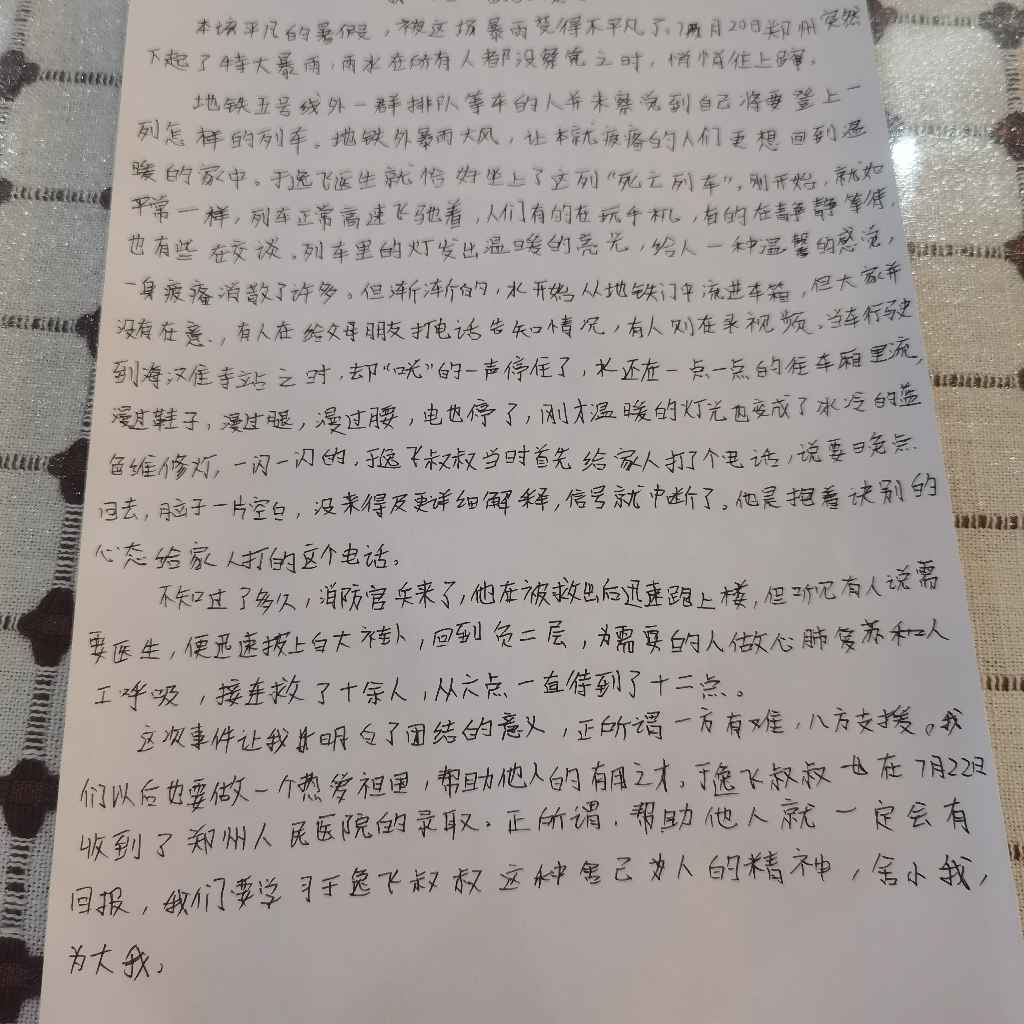 本该平凡的暑假,被这场暴雨变得不平凡了。7月20日郑州突然
下起了特大暴雨,雨水在所有人都没察觉之时,悄悄往上蹿。
地铁五号线外一群排队等车的人并未察觉到自己将要登上一
列怎样的列车。地铁外暴雨大风,让本就疲惫的人们更想回到温
暖的家中。于逸飞医生就恰好坐上了这列“死亡列车”,刚开始,就如
平常一样,列车正常高速飞驰着,人们有的在玩手机,有的在静静等待,
也有些在交谈。列车里的灯发出温暖的亮光,给人一种温馨的感觉,
一身疲惫消散了许多。但渐渐的,水开始从地铁门中流进车箱,但大家并
没有在意,有人在给父母朋友打电话告知情况,有人则在录视频。当车行驶
到海滩寺站之时,却“咣”的一声停住了,水还在一点一点的往车厢里流,
漫过鞋子,漫过腿,漫过腰,电也停了,刚才温暖的灯光也变成了冰冷的蓝
色维修灯,一闪一闪的,于逸飞叔叔当时首先给家人打了个电话,说要晚点
回去,脑子一片空白,没来得及更详细解释,信号就中断了。他是抱着诀别的
心态给家人打的这个电话。
不知过了多久,消防官兵来了,他在被救出后迅速跑上楼,但听见有人说需
要医生,便迅速披上白大褂,回到负二层,为需要的人做心肺复苏和人
工呼吸,接连救了十余人,从六点一直待到了十二点。
这次事件让我明白了团结的意义,正所谓一方有难,八方支援。我
们以后也要做一个热爱祖国,帮助他人的有用之才。于逸飞叔叔也在7月22日
收到了郑州人民医院的录取。正所谓,帮助他人就一定会有
回报,我们要学习于逸飞叔叔这种舍己为人的精神,舍小我,
为大我。